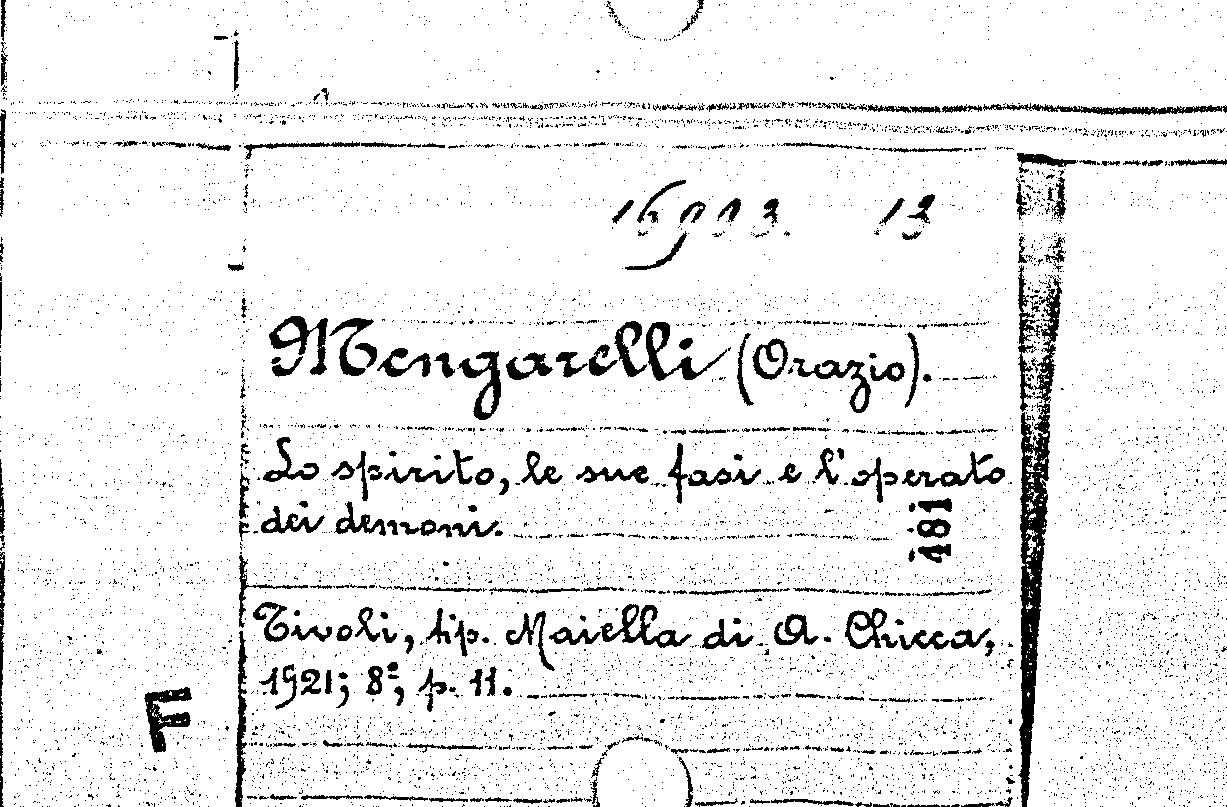 16993. 13
Mengarelli (Orazio).
Lo spirito, le sue fasi e l'operato
dei demoni.
181
Tivoli, tip. Maiella di A. Chicca,
1921; 8º, p. 11.
F